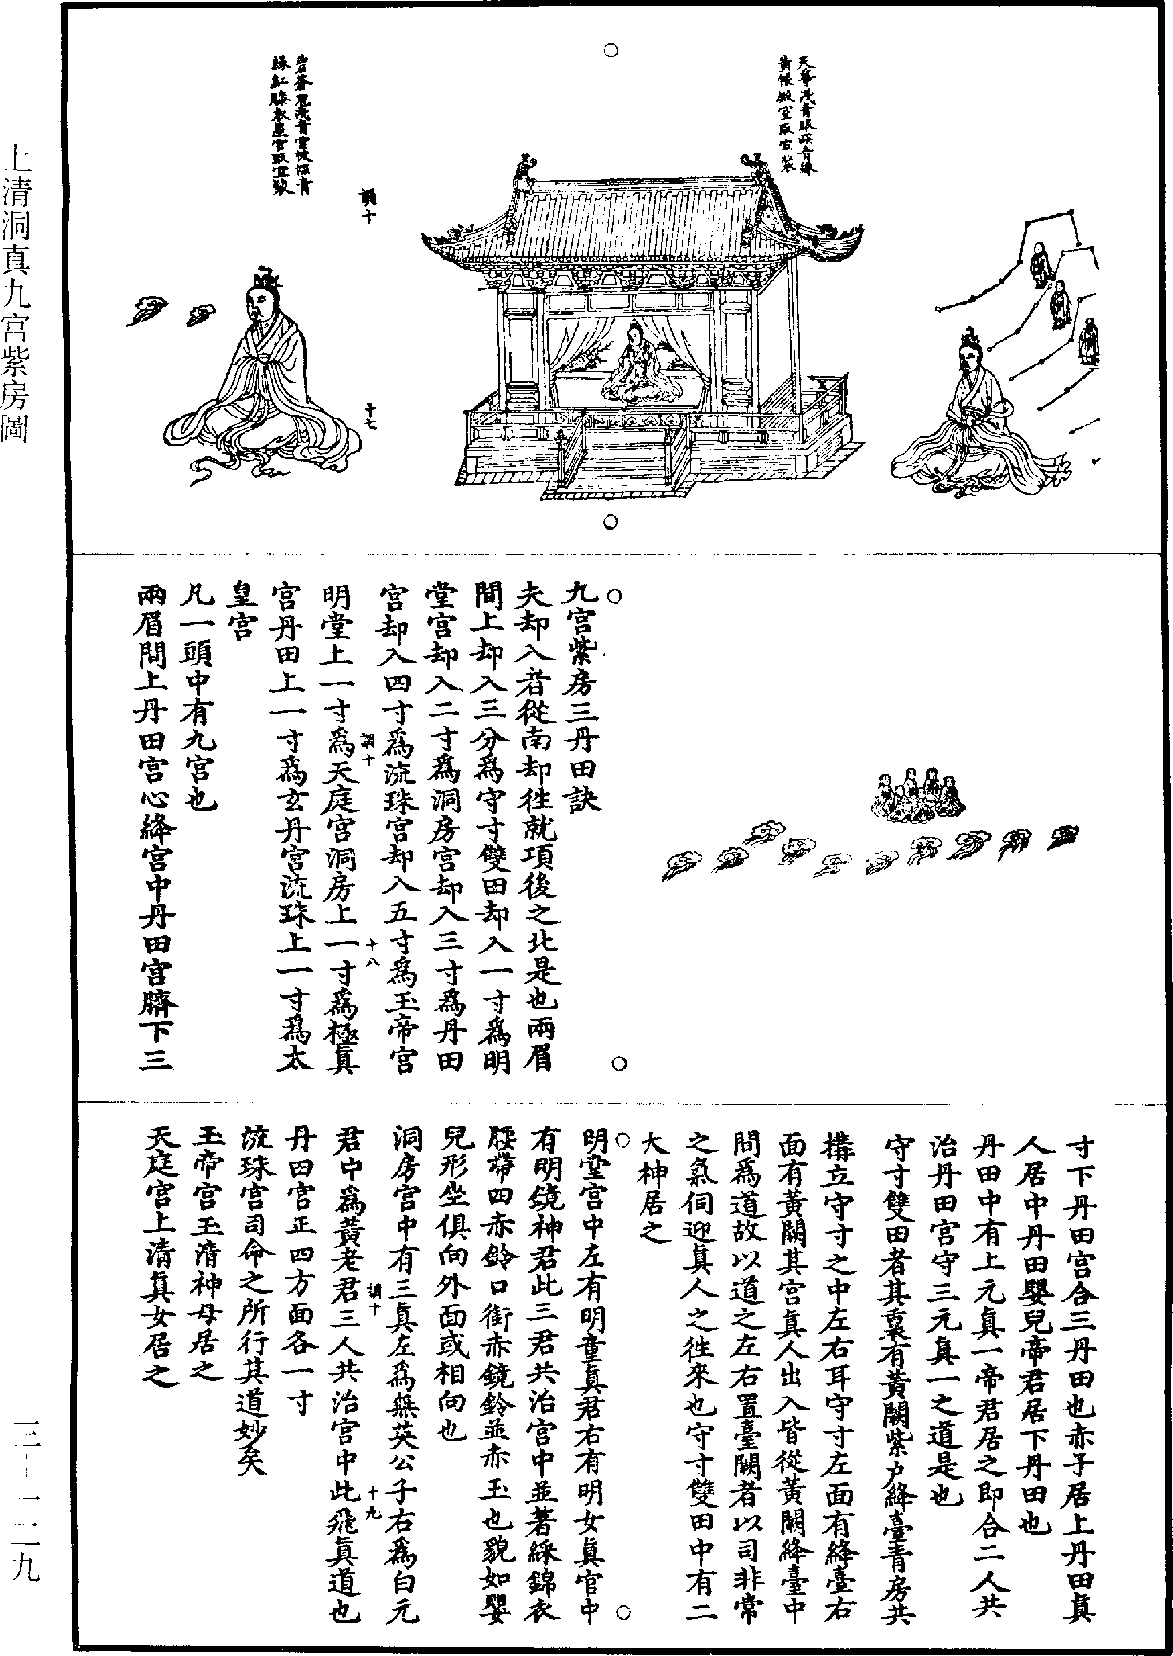 上清洞真九宮紫房圖
三－一二九
調十
十七
九宮紫房三丹田訣
夫却入者從南却往就項後之北是也兩眉
間上却入三分爲守寸雙田却入一寸爲明
堂宮却入二寸爲洞房宮却入三寸爲丹田
宮却入四寸爲流珠宮却入五寸爲玉帝宮
調十
十八
明堂上一寸爲天庭宮洞房上一寸爲極真
宮丹田上一寸爲玄丹宮流珠上一寸爲太
皇宮
凡一頭中有九宮也
兩眉間上丹田宮心絳宮中丹田宮臍下三
寸下丹田宮合三丹田也赤子居上丹田真
人居中丹田嬰兒帝君居下丹田也
丹田中有上元真一帝君居之即合二人共
治丹田宮守三元真一之道是也
守寸雙田者其裏有黃闕紫户絳臺青房共
構立守寸之中左右耳守寸左面有絳臺右
面有黃闕其宮真人出入皆從黃闕絳臺中
間爲道故以道之左右置臺闕者以司非常
之氣伺迎真人之往來也守寸雙田中有二
大神居之
明堂宮中左有明童真君右有明女真官中
有明鏡神君此三君共治宮中並著綵錦衣
腰帶四赤鈴口銜赤鏡鈴並赤玉也貌如嬰
兒形坐俱向外面或相向也
洞房宮中有三真左爲無英公子右爲白元
調十
十九
君中爲黃老君三人共治宮中此飛真道也
丹田宮正四方面各一寸
流珠宮司命之所行其道妙矣
玉帝宮玉清神母居之
天庭宮上清真女居之